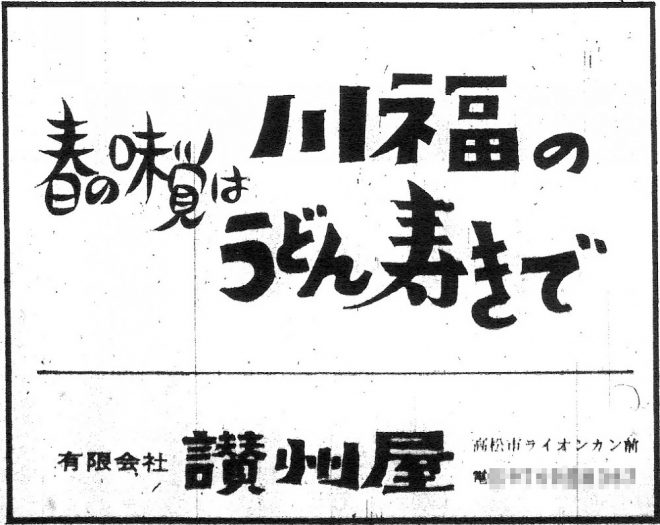 春の味覚は
川福の
うどん寿きで
有限会社 讃州屋
高松市ライオンカン前
電